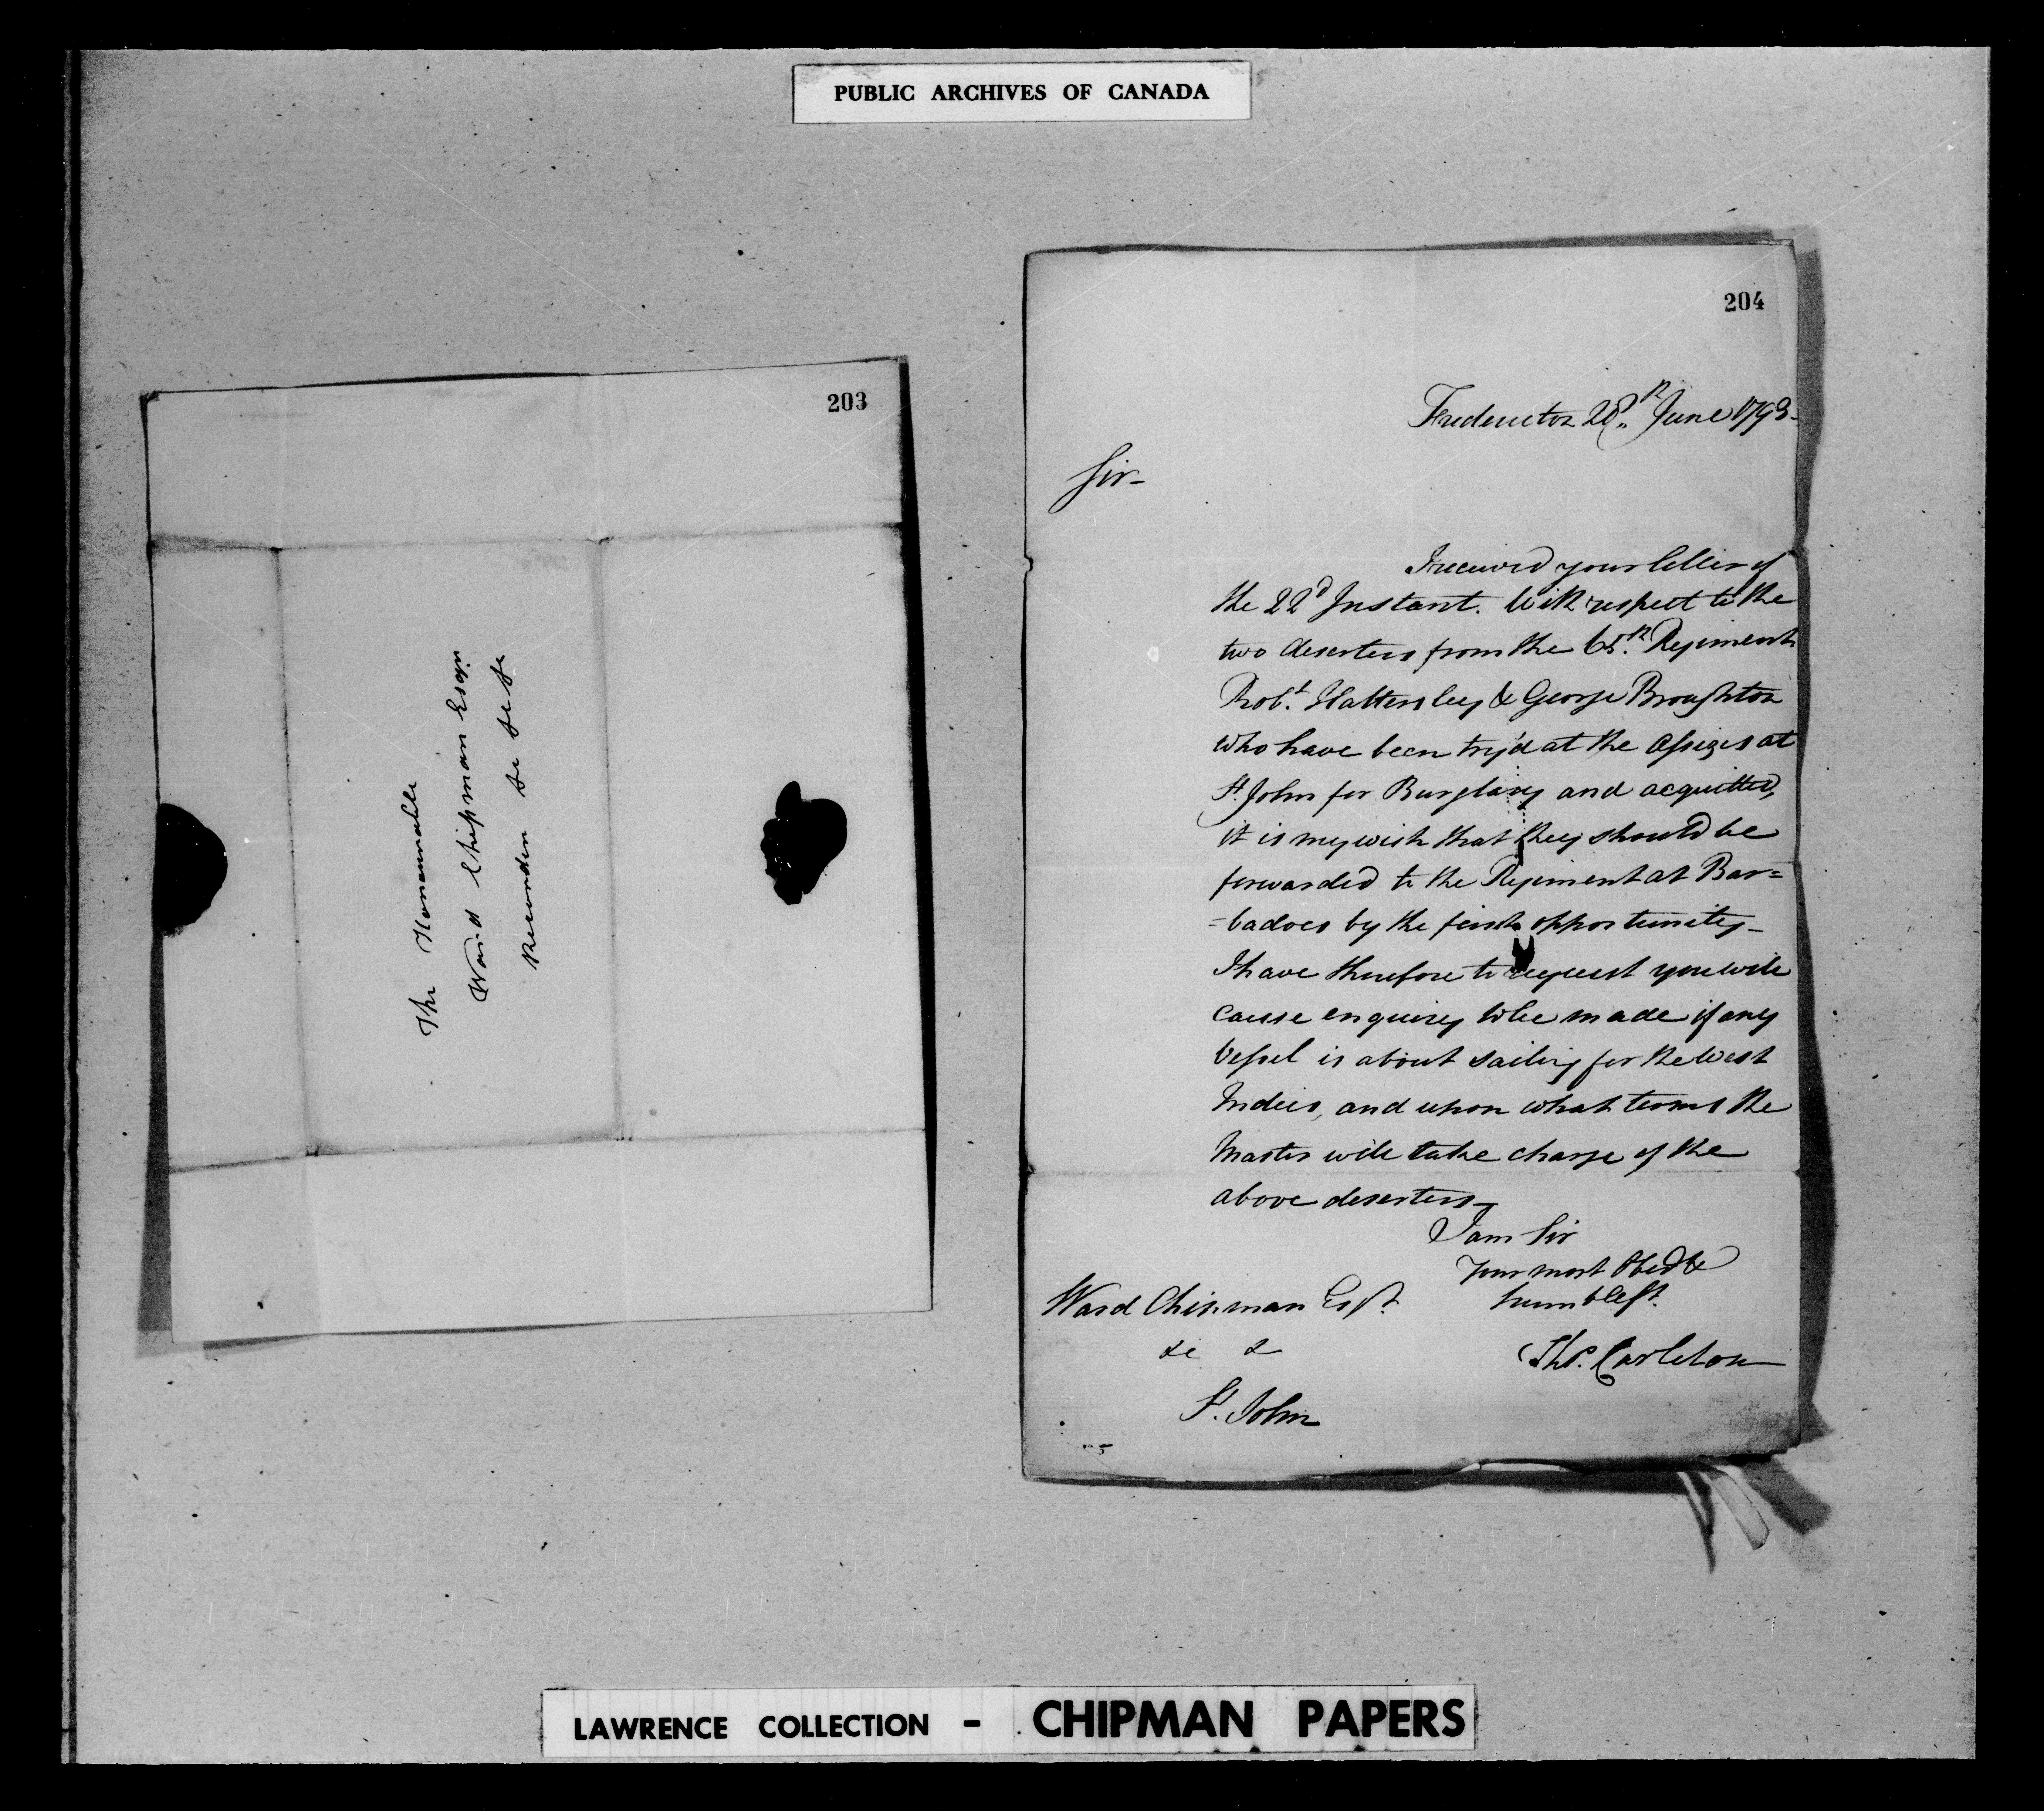 PUBLIC ARCHIVES OF CANADA
203
The Honourable
Ward Chipman Esqr
Recorder &c &c &c
204
Fredericton 28th June 1793-
Sir-
I received your letter of
the 22d Instant. With respect to the
two deserters from the 65th Regiment
Robt. Hattersley & George Broughton
who have been try'd at the Assizes at
St. John for Burglary and acquitted,
it is my wish that they should be
forwarded to the Regiment at Bar=
=badoes by the first opportunity-
I have therefore to request you will
cause enquiry to be made if any
Vessel is about sailing for the West
Indies, and upon what terms the
Master will take charge of the
above deserters-
I am Sir
Your most Obedt &
humble St.
Thos. Carleton
Ward Chipman Esqr.
&c &
St. John
LAWRENCE COLLECTION - CHIPMAN PAPERS